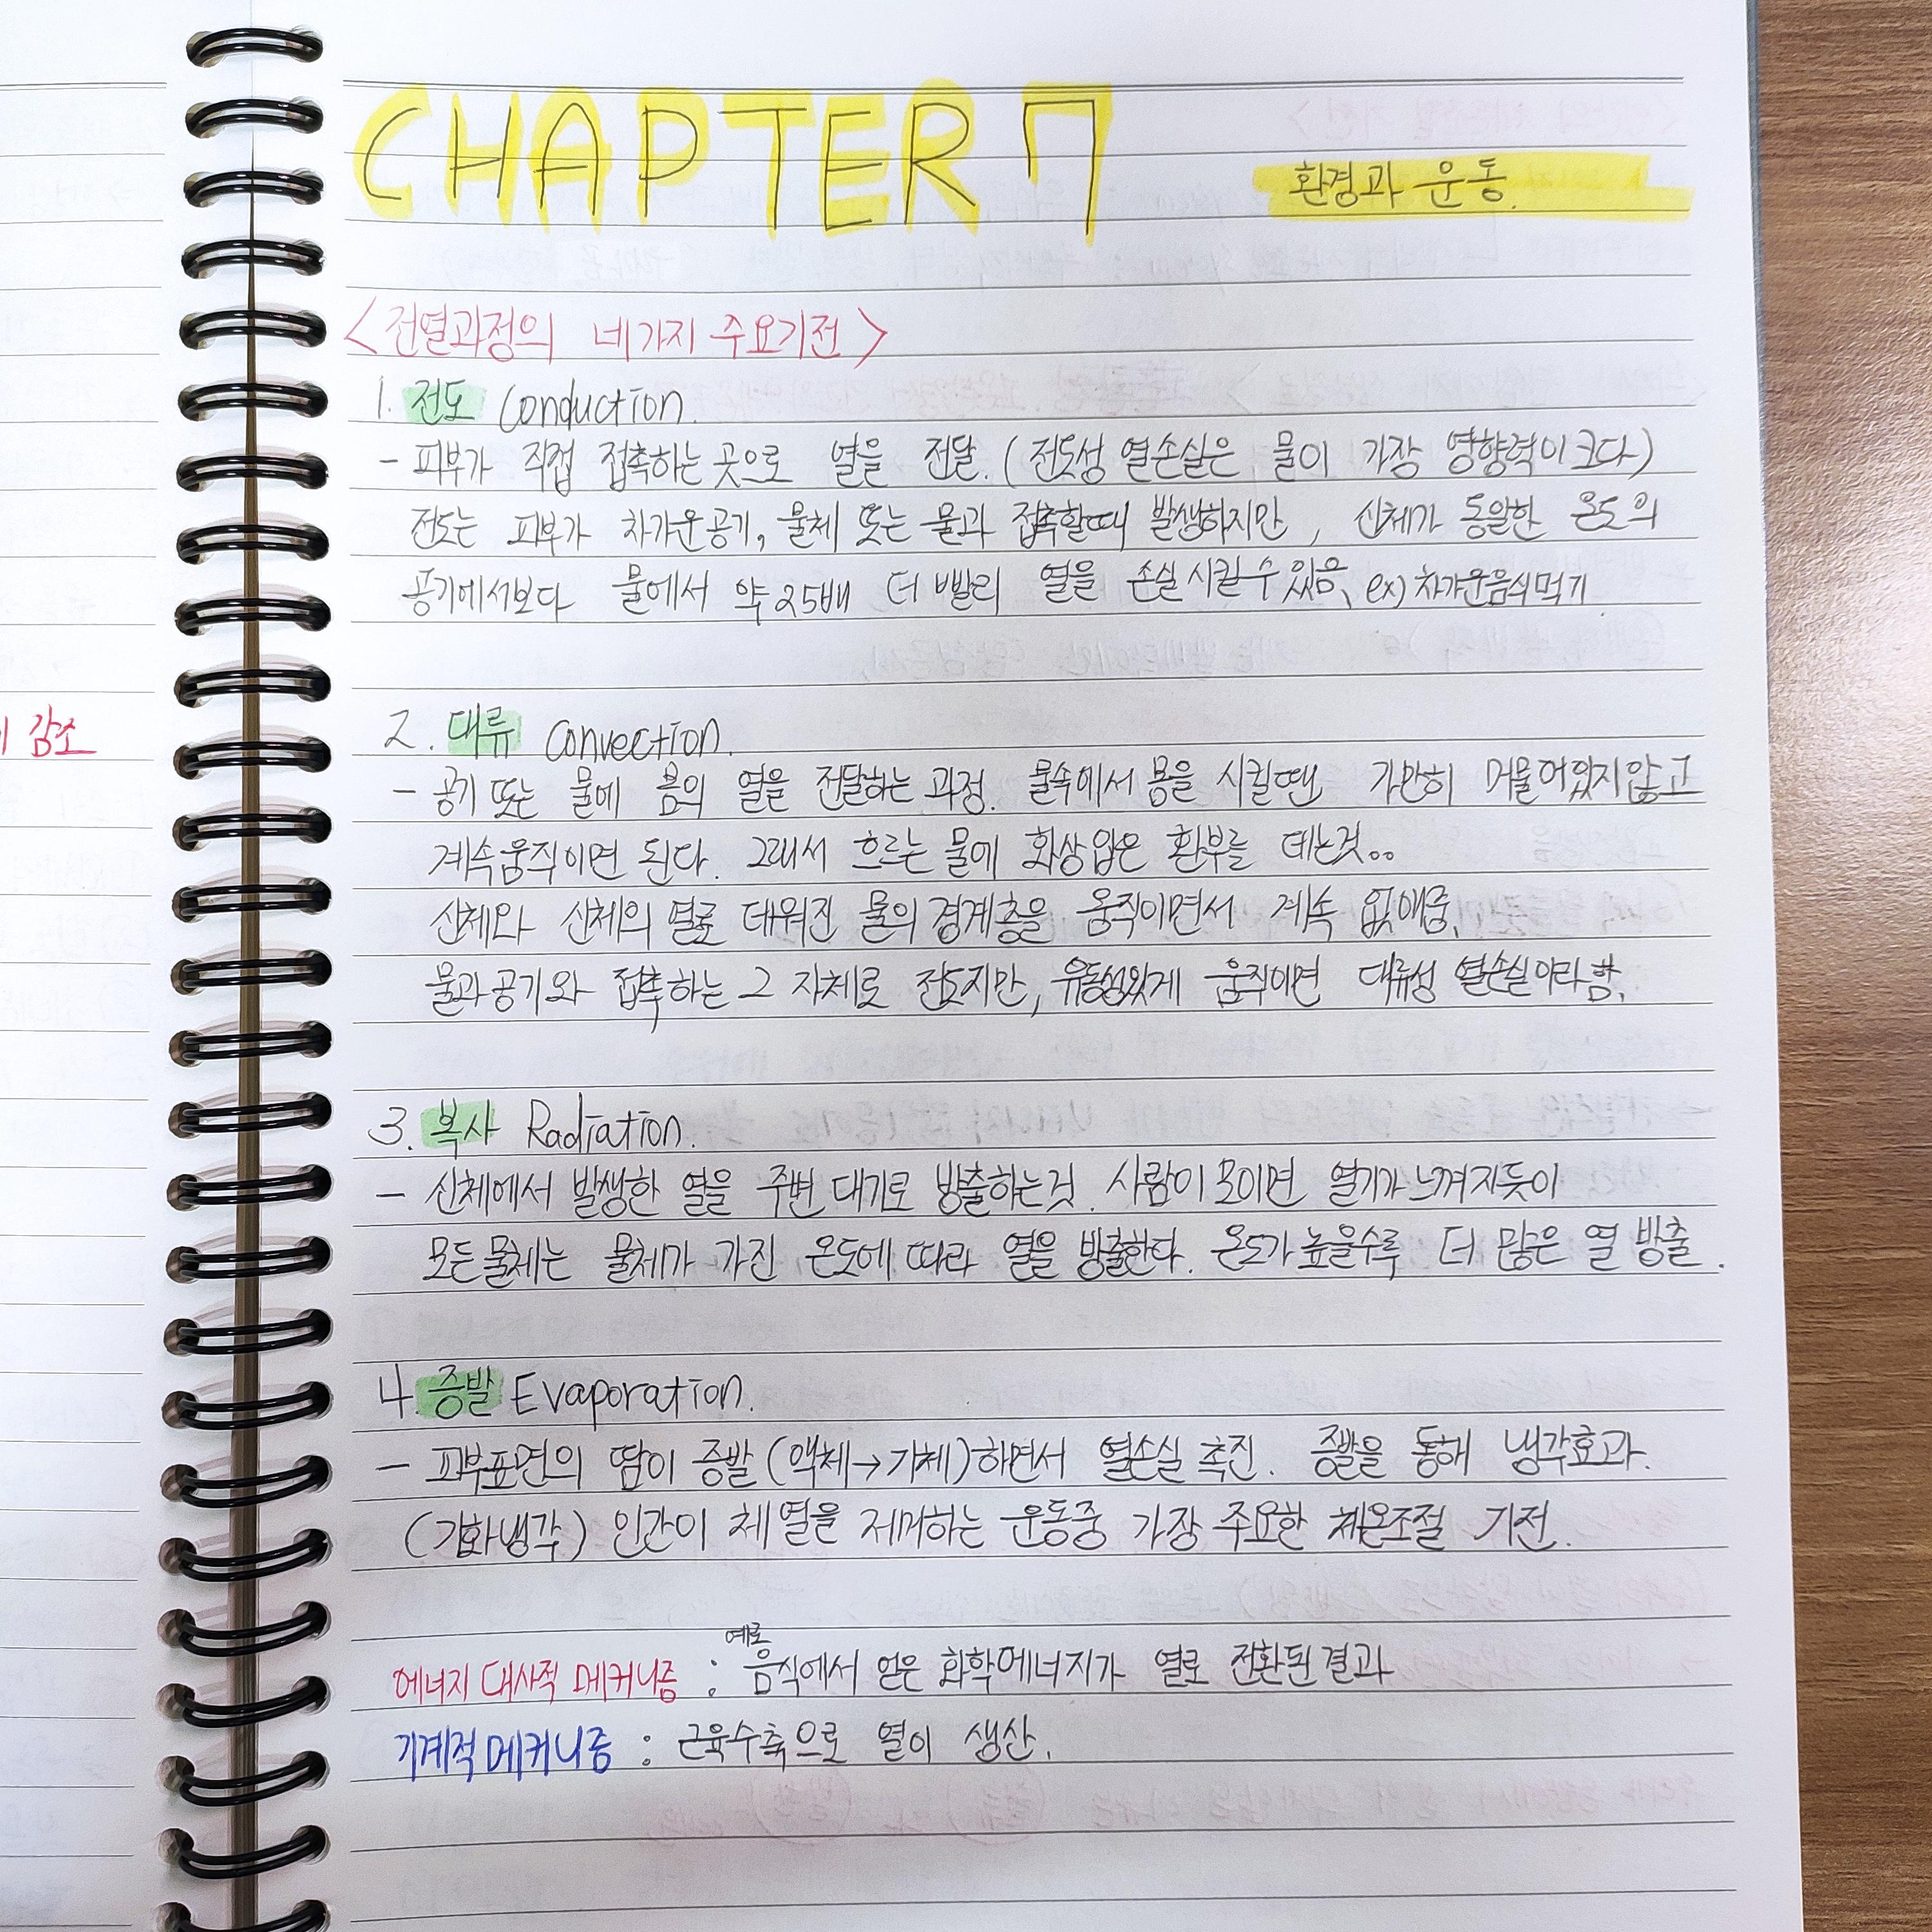 CHAPTER 7
환경과 운동.
<전열과정의 네가지 주요기전>
1. 전도 Conduction.
- 피부가 직접 접촉하는 곳으로 열을 전달. (전도성 열손실은 물이 가장 영향력이 크다)
전도는 피부가 차가운공기, 물체 또는 물과 접촉할때 발생하지만, 신체가 동일한 온도의
공기에서보다 물에서 약 25배 더 빨리 열을 손실 시킬 수 있음. ex) 차가운음식먹기
2. 대류 Convection.
- 공기 또는 물에 몸의 열을 전달하는 과정. 물속에서 몸을 시킬땐 가만히 머물어있지않고
계속움직이면 된다. 그래서 흐르는 물에 화상입은 환부를 대는것..
신체와 신체의 열로 데워진 물의 경계층을 움직이면서 계속 없애줌.
물과 공기와 접촉하는 그 자체로 전도지만, 유동성있게 움직이면 대류성 열손실이라 함.
3. 복사 Radiation.
- 신체에서 발생한 열을 주변 대기로 방출하는것. 사람이 모이면 열기가 느껴지듯이
모든물체는 물체가 가진 온도에 따라 열을 방출한다. 온도가 높을수록 더 많은 열 방출.
4. 증발 Evaporation.
- 피부표면의 땀이 증발 (액체→기체)하면서 열손실 촉진. 증발을 통해 냉각효과.
(기화냉각) 인간이 체열을 제거하는 운동중 가장 주요한 체온조절 기전.
예로
에너지 대사적 메커니즘 : 음식에서 얻은 화학에너지가 열로 전환된 결과
기계적메커니즘 : 근육수축으로 열이 생산.
감소